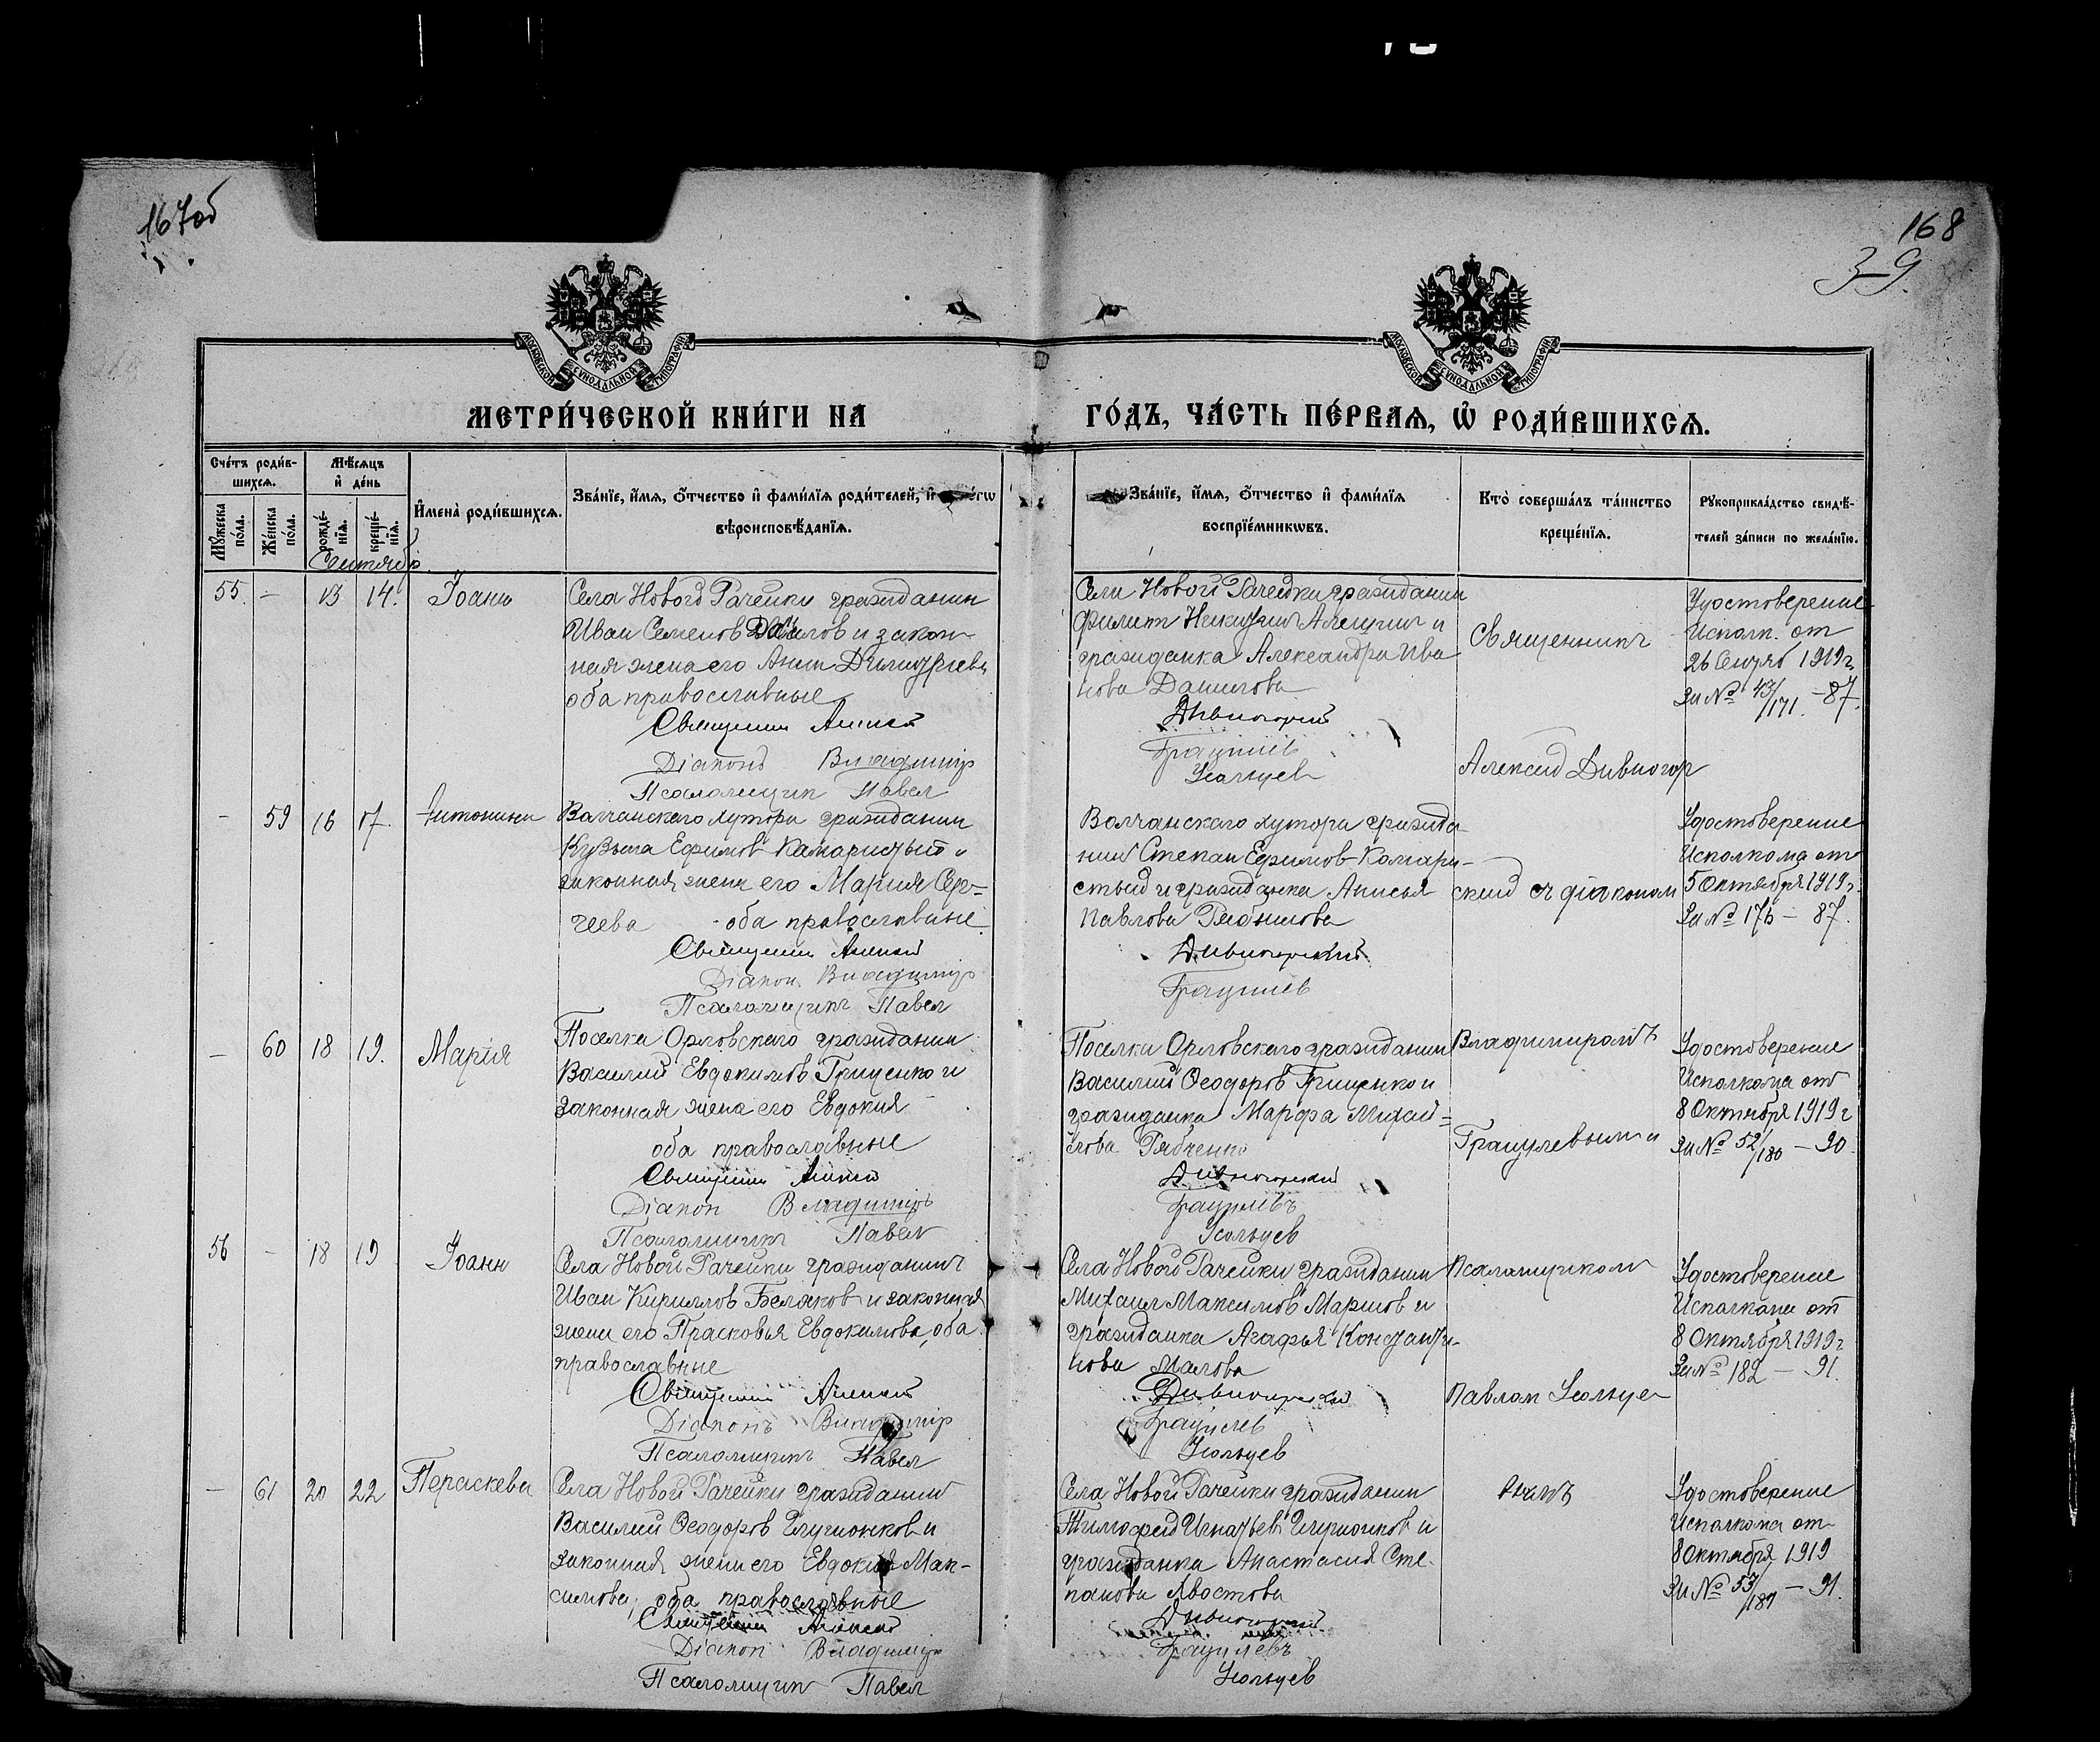 167об
168
39.
МОСКОВСКОЙ СѴНОДАЛЬНОЙ ТИПОГРАФІИ
МОСКОВСКОЙ СѴНОДАЛЬНОЙ ТИПОГРАФІИ
МЕТРИ́ЧЕСКОЙ КНИ́ГИ НА
ГО́ДЪ, ЧА́СТЬ ПЕ́РВАѦ, Ѽ РОДИ́ВШИХСѦ.
Сче́тъ роди́в-
шихсѧ.
Мѣ́сѧцъ
и҆ де́нь
И҆мена̀ роди́вшихсѧ.
Зва́нїе, и҆́мѧ, ѻ҆́тчество и҆ фами́лїѧ роди́телей, и҆
вѣ̑роисповѣ́данїѧ.
Мꙋ́жеска по́ла.
Же́нска по́ла.
рожде́-нїѧ.
креще́-нїѧ.
Зва́нїе, и҆́мѧ, ѻ҆́тчество и҆ фами́лїѧ
воспрїе́мникѡвъ.
Кто̀ соверша́лъ та́инство
креще́нїѧ.
Рꙋкоприкла́дство свидѣ́-
телей за́писи по жела́нїю.
Сентябр
55. - 13 14. Іоанн
Села Новой Рачейки гражданин
Иван Семенов Данилов и закон-
ная жена его Анна Димитриева
оба православные
Священник Алексей
Діаконъ Владимір
Псаломщик Павел
Села Новой Рачейки гражданин
Филипп Никитин Алешин и
гражданка Александра Ива
нова Данилова
Дивногорский
Грацилев
Усольцев
Священникъ
Алексий Дивногор
Удостоверение
Исполк. от
26 Сентяб 1919 г.
За № 43/171. - 87.
- 59 16 17. Антонина
Волчанскаго хутора гражданин
Кузьма Ефимов Камаристый и
законная жена его Мария Сер-
геева - оба православные
Священник Алексей
Діакон Владимір
Псаломщикъ Павел
Волчанскаго хутора гражда-
нин Степан Ефимов Камари-
стый и гражданка Анисья
Павлова
Дивногорский
Грацилев
ский с діаконом
Удостоверение
Исполкома от
5 Октября 1919 г.
За № 176 - 87.
- 60 18 19. Мария
Поселка Орловскаго гражданин
Василий Евдокимов Гриценко и
законная жена его Евдокия
оба православные
Священник Алексей
Діакон Владимір
Псаломщикъ Павел
Поселка Орловскаго гражданин
Василий Феодоров Гриценко и
гражданка Марфа Михай-
лова Рябченко
Дивногорский
Грацилевъ
Усольцев
Владимиромъ
Грацилевым и
Удостоверение
Исполкома от
8 Октября 1919 г
За № 52/180 - 90.
56 - 18 19 Іоанн
Села Новой Рачейки гражданин
Иван Кириллов Беляков и законная
жена его Прасковья Евдокимова, оба
православные
Священник Алексей
Діаконъ Владимір
Псаломщикъ Павел
Села Новой Рачейки гражданин
Михаил Максимов и
гражданка Агафья Константи-
нова Малова
Дивногорский
Грацилев
Усольцев
Псаломщиком
Павлом Усольце-
Удостоверение
Исполкома от
8 Октября 1919 г
За № 182 - 91.
- 61 20 22 Параскева
Села Новой Рачейки гражданин
Василий Феодоров и
законная жена его Евдокия Мак-
симова, оба православные
Священник Алексей
Діакон Владимір
Псаломщик Павел
Села Новой Рачейки гражданин
Тимофей Игнатьев и
гражданка Анастасия Сте-
панова Хвостова
Дивногорский
Грацилевъ
Усольцев
Удостоверение
Исполкома от
8 Октября 1919
За № 53/181 - 91.